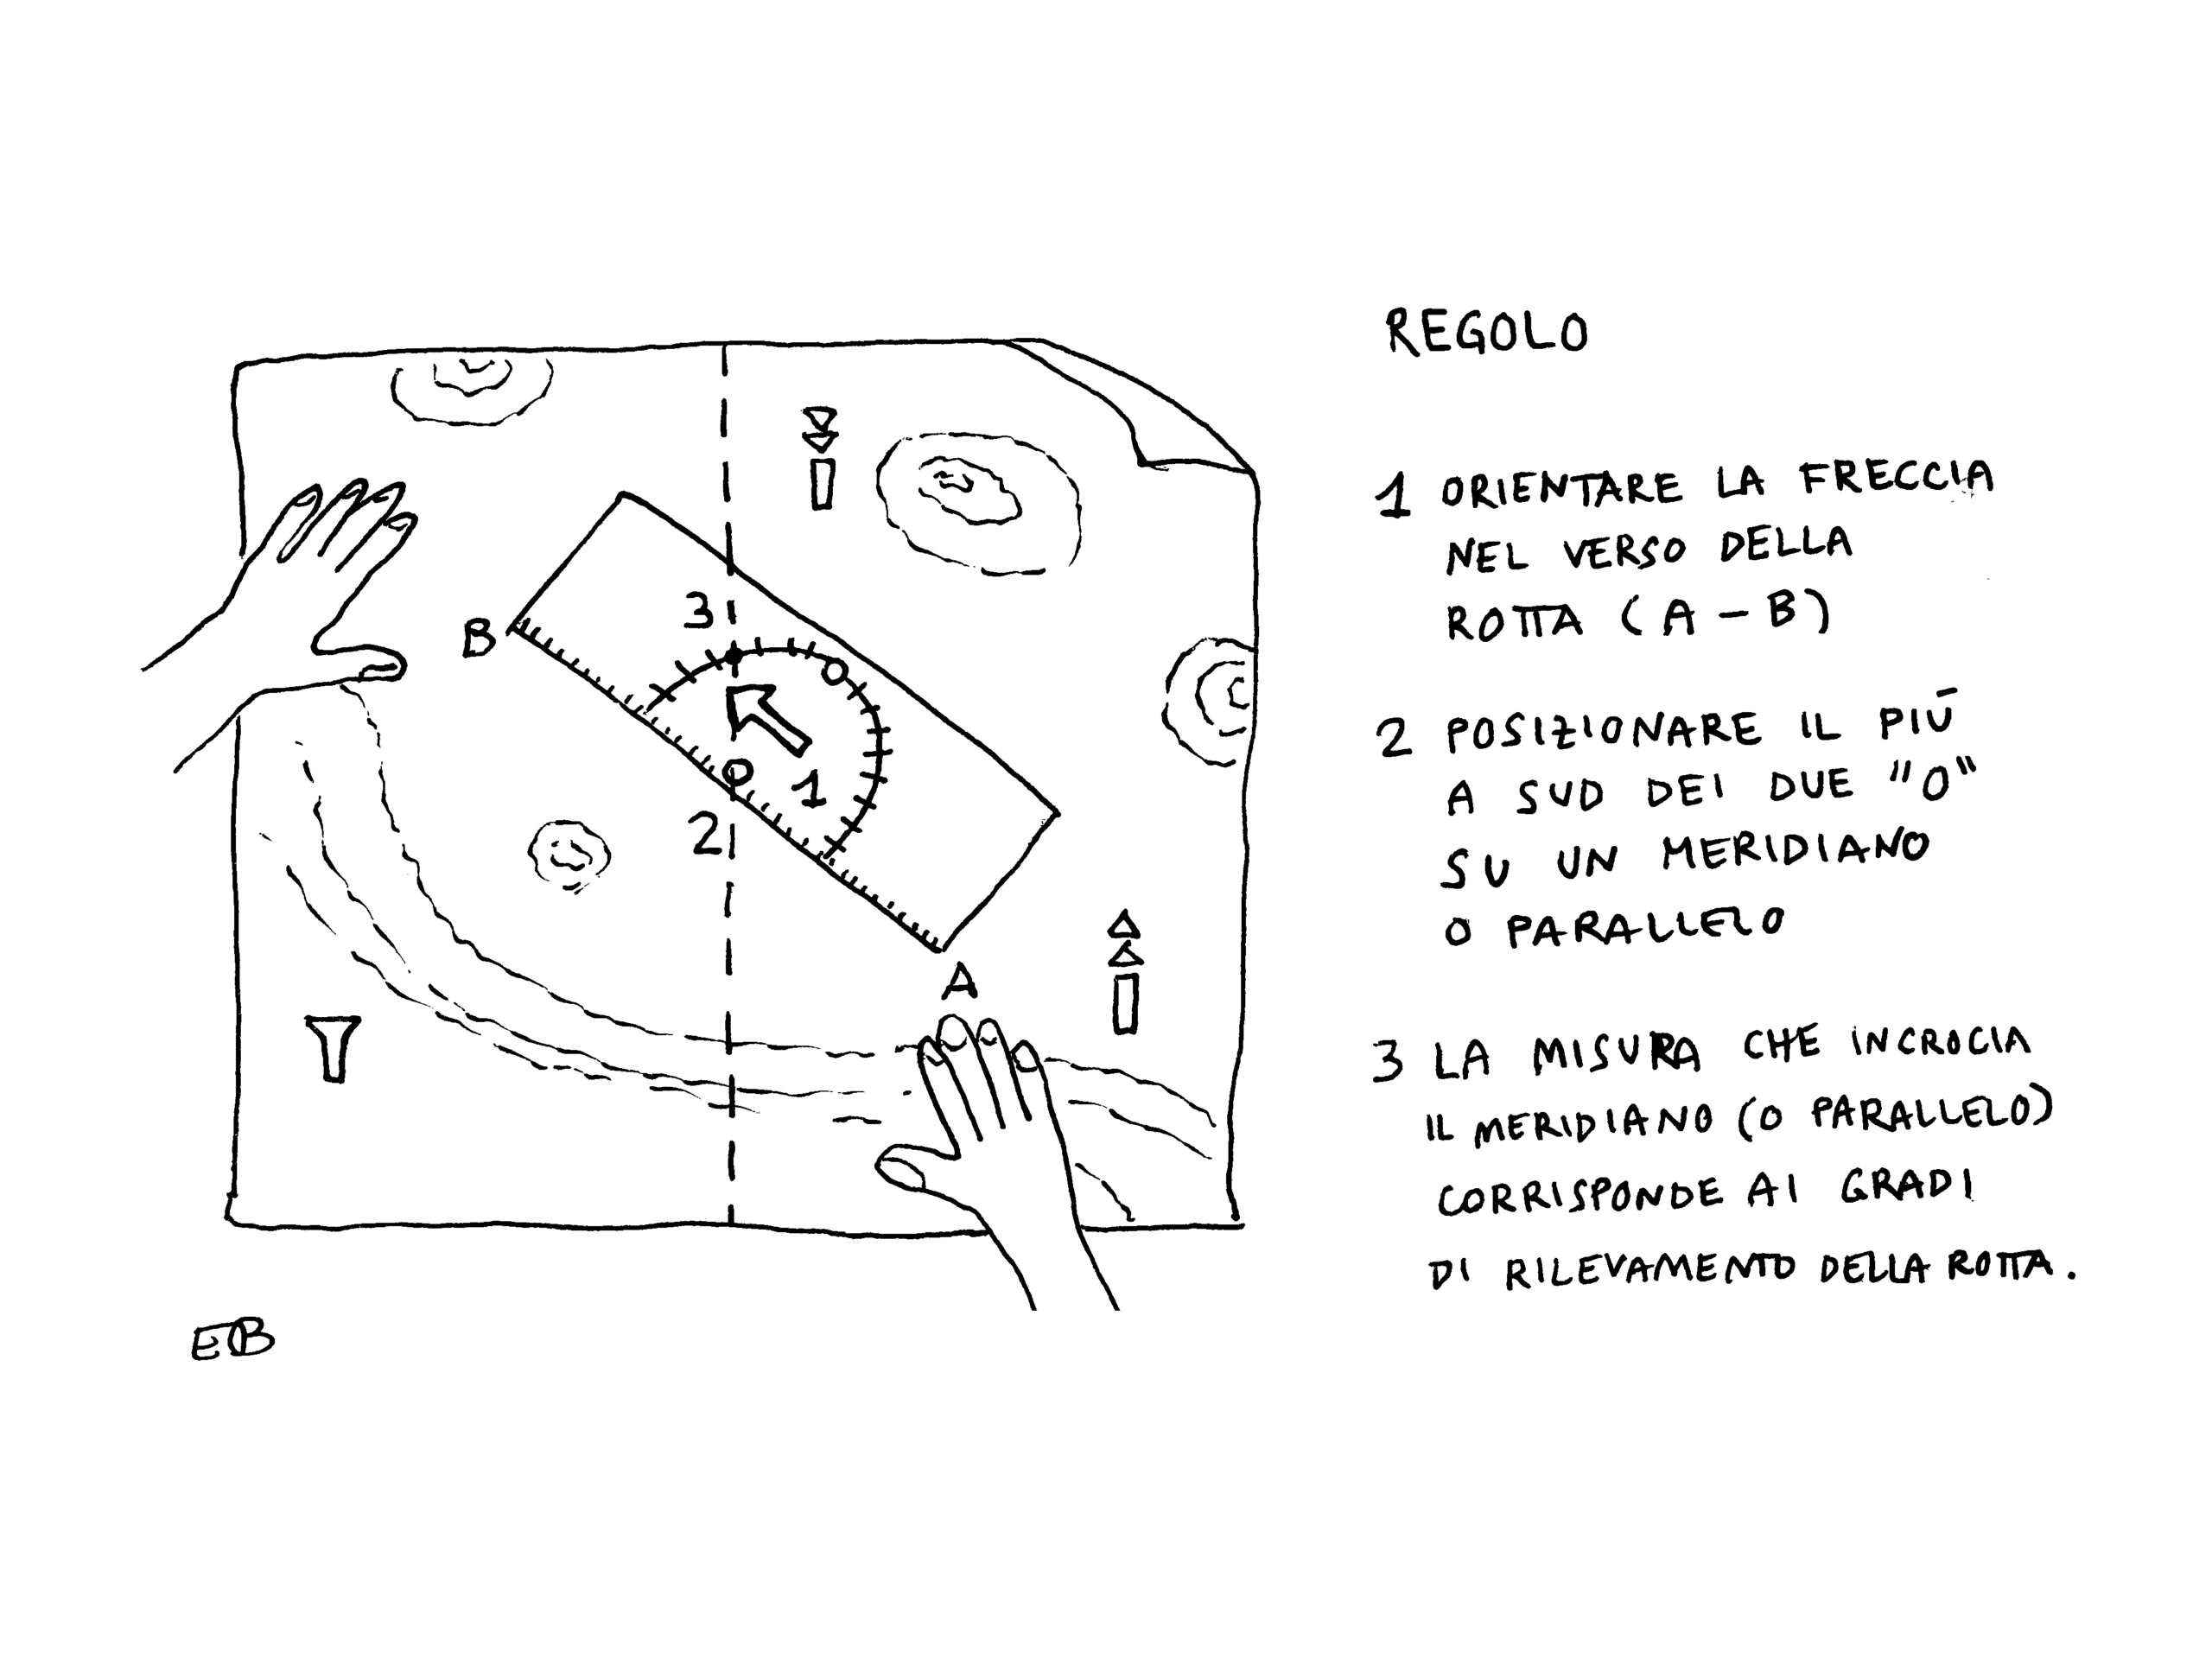 REGOLO
1 ORIENTARE LA FRECCIA
NEL VERSO DELLA
ROTTA (A-B)
2 POSIZIONARE IL PIÙ
A SUD DEI DUE "O"
SU UN MERIDIANO
O PARALLELO
3 LA MISURA CHE INCROCIA
IL MERIDIANO (O PARALLELO)
CORRISPONDE AI GRADI
DI RILEVAMENTO DELLA ROTTA.
3
B
O
O
1
2
A
EB